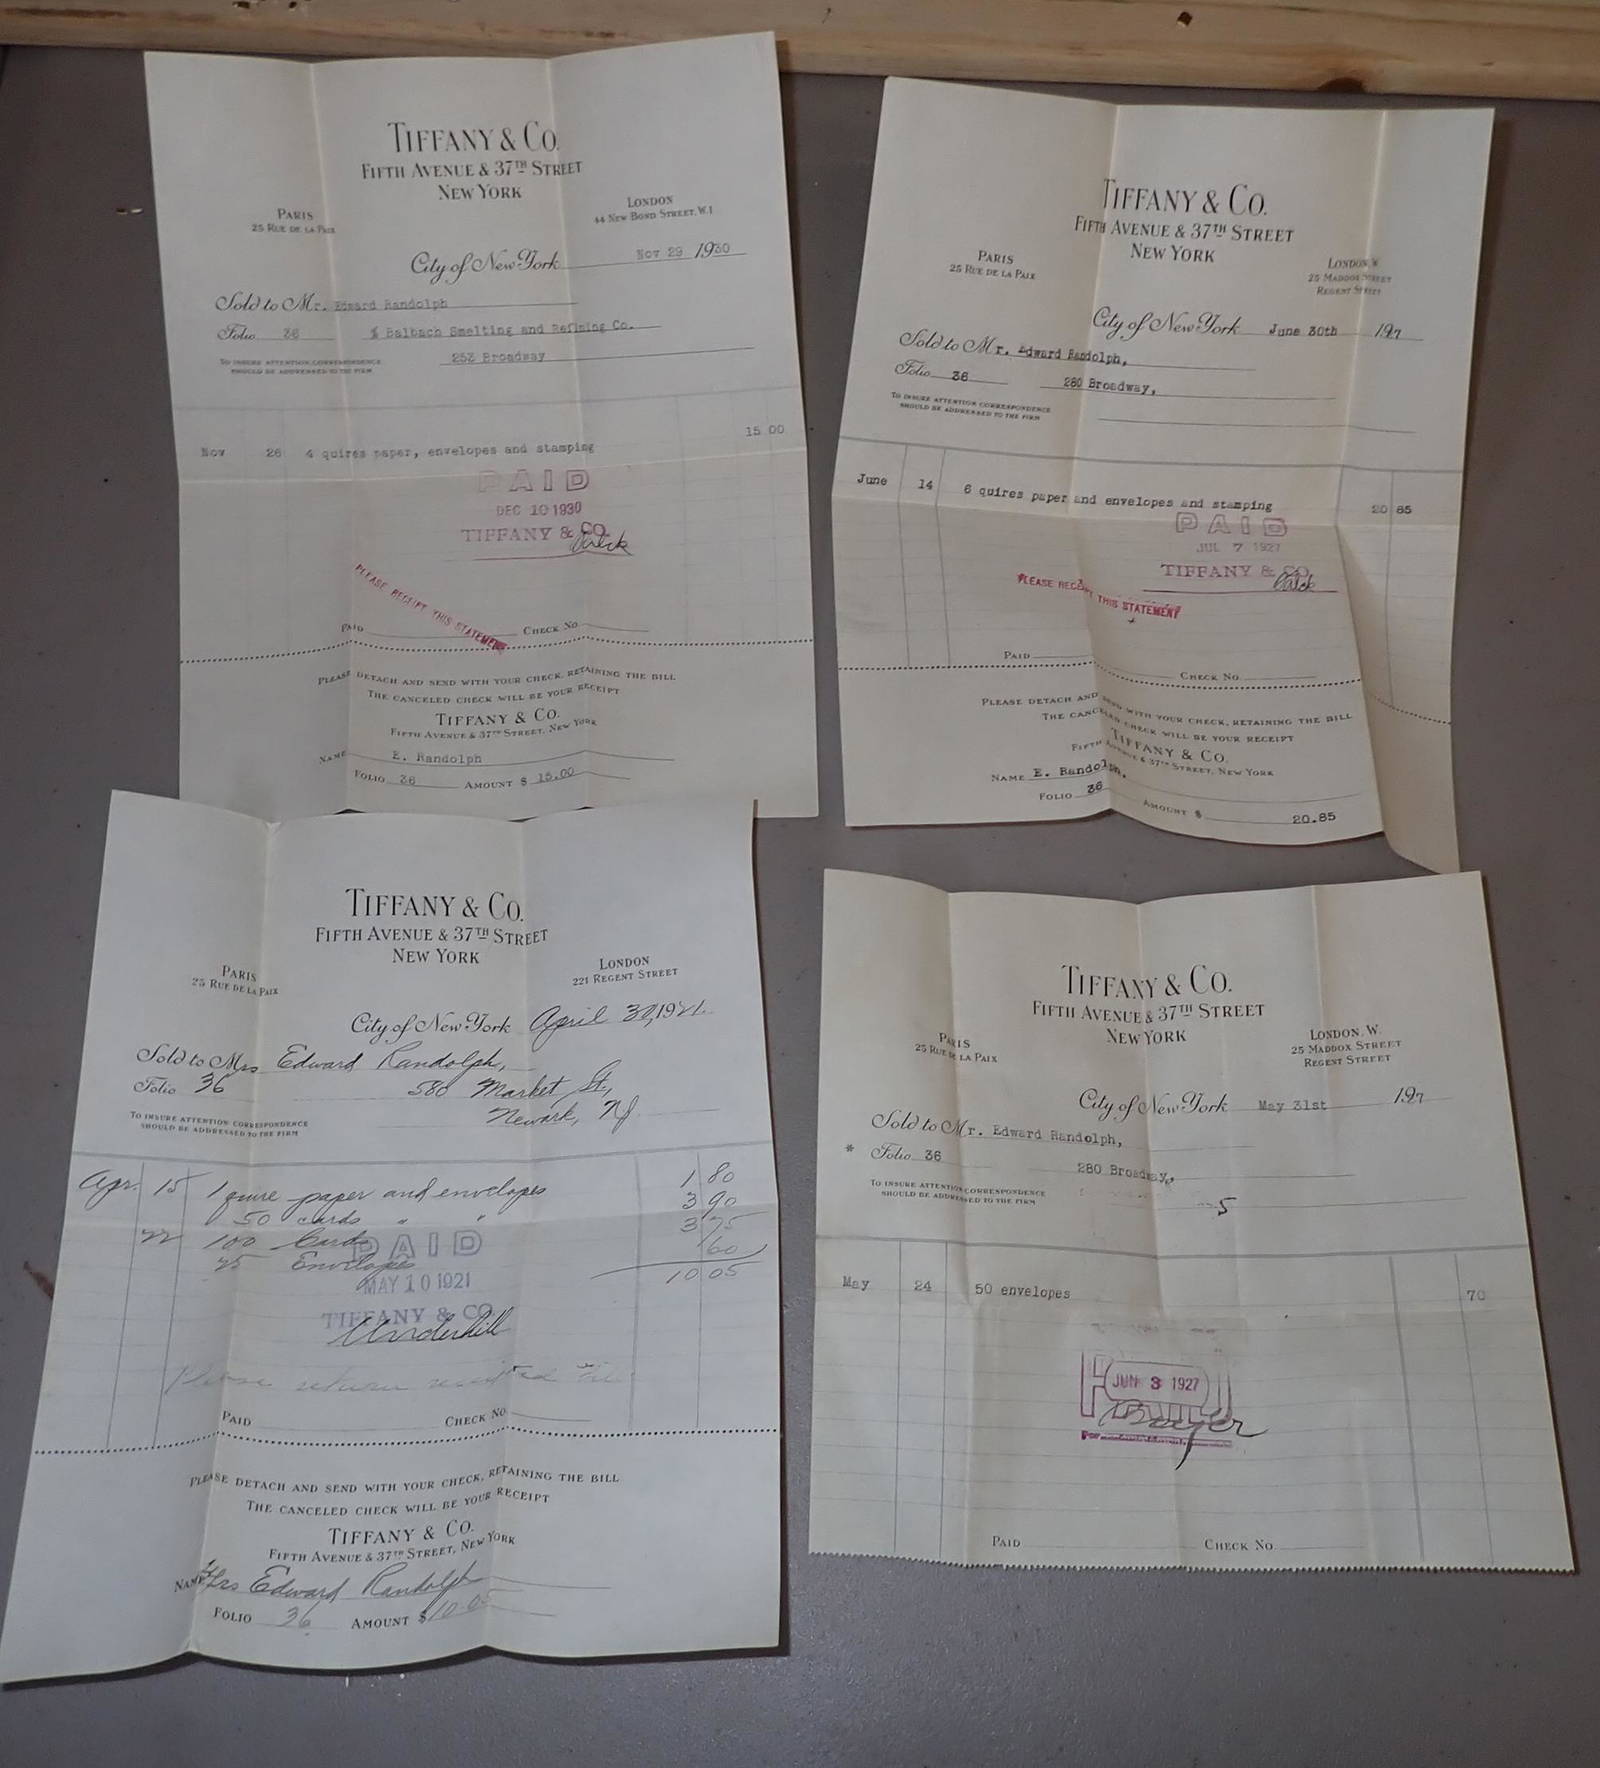 TIFFANY & CO.
FIFTH AVENUE & 37TH STREET
NEW YORK
PARIS
25 RUE DE LA PAIX
LONDON
44 NEW BOND STREET, W.1
City of New York Nov 29 1930
Sold to Mr. Edward Randolph
Folio 36 % Balbach Smelting and Refining Co.
TO INSURE ATTENTION CORRESPONDENCE
SHOULD BE ADDRESSED TO THE FIRM
253 Broadway
15 00
Nov 26 4 quires paper, envelopes and stamping
PAID
DEC 10 1930
TIFFANY & CO.
PLEASE RECEIPT THIS STATEMENT
PAID CHECK NO.
PLEASE DETACH AND SEND WITH YOUR CHECK, RETAINING THE BILL
THE CANCELED CHECK WILL BE YOUR RECEIPT
TIFFANY & CO.
FIFTH AVENUE & 37TH STREET, NEW YORK
NAME E. Randolph
FOLIO 36 AMOUNT $ 15.00
TIFFANY & CO.
FIFTH AVENUE & 37TH STREET
NEW YORK
PARIS
25 RUE DE LA PAIX
LONDON, W.
25 MADDOX STREET
REGENT STREET
City of New York June 30th 1927
Sold to Mr. Edward Randolph,
Folio 36 280 Broadway,
TO INSURE ATTENTION CORRESPONDENCE
SHOULD BE ADDRESSED TO THE FIRM
June 14 6 quires paper and envelopes and stamping 20 85
PAID
JUL 7 1927
TIFFANY & CO.
PLEASE RECEIPT THIS STATEMENT
PAID CHECK NO.
PLEASE DETACH AND SEND WITH YOUR CHECK, RETAINING THE BILL
THE CANCELED CHECK WILL BE YOUR RECEIPT
TIFFANY & CO.
FIFTH AVENUE & 37TH STREET, NEW YORK
NAME E. Randolph.
FOLIO 36 AMOUNT $ 20.85
TIFFANY & CO.
FIFTH AVENUE & 37TH STREET
NEW YORK
PARIS
25 RUE DE LA PAIX
LONDON
221 REGENT STREET
City of New York April 30, 1921.
Sold to Mrs Edward Randolph,
Folio 36 580 Market St.,
Newark, NJ
TO INSURE ATTENTION CORRESPONDENCE
SHOULD BE ADDRESSED TO THE FIRM
Apr. 15 1 quire paper and envelopes 1 80
50 cards " " 3 90
22 100 Cards 3 75
25 Envelopes 60
10 05
PAID
MAY 10 1921
TIFFANY & CO.
Underhill
Please return receipted bill
PAID CHECK NO.
PLEASE DETACH AND SEND WITH YOUR CHECK, RETAINING THE BILL
THE CANCELED CHECK WILL BE YOUR RECEIPT
TIFFANY & CO.
FIFTH AVENUE & 37TH STREET, NEW YORK
NAME Mrs Edward Randolph
FOLIO 36 AMOUNT $ 10.05
TIFFANY & CO.
FIFTH AVENUE & 37TH STREET
NEW YORK
PARIS
25 RUE DE LA PAIX
LONDON, W.
25 MADDOX STREET
REGENT STREET
City of New York May 31st 1927
Sold to Mr. Edward Randolph,
* Folio 36 280 Broadway,
TO INSURE ATTENTION CORRESPONDENCE
SHOULD BE ADDRESSED TO THE FIRM
5
May 24 50 envelopes 70
PAID
JUN 3 1927
Per
PAID CHECK NO.